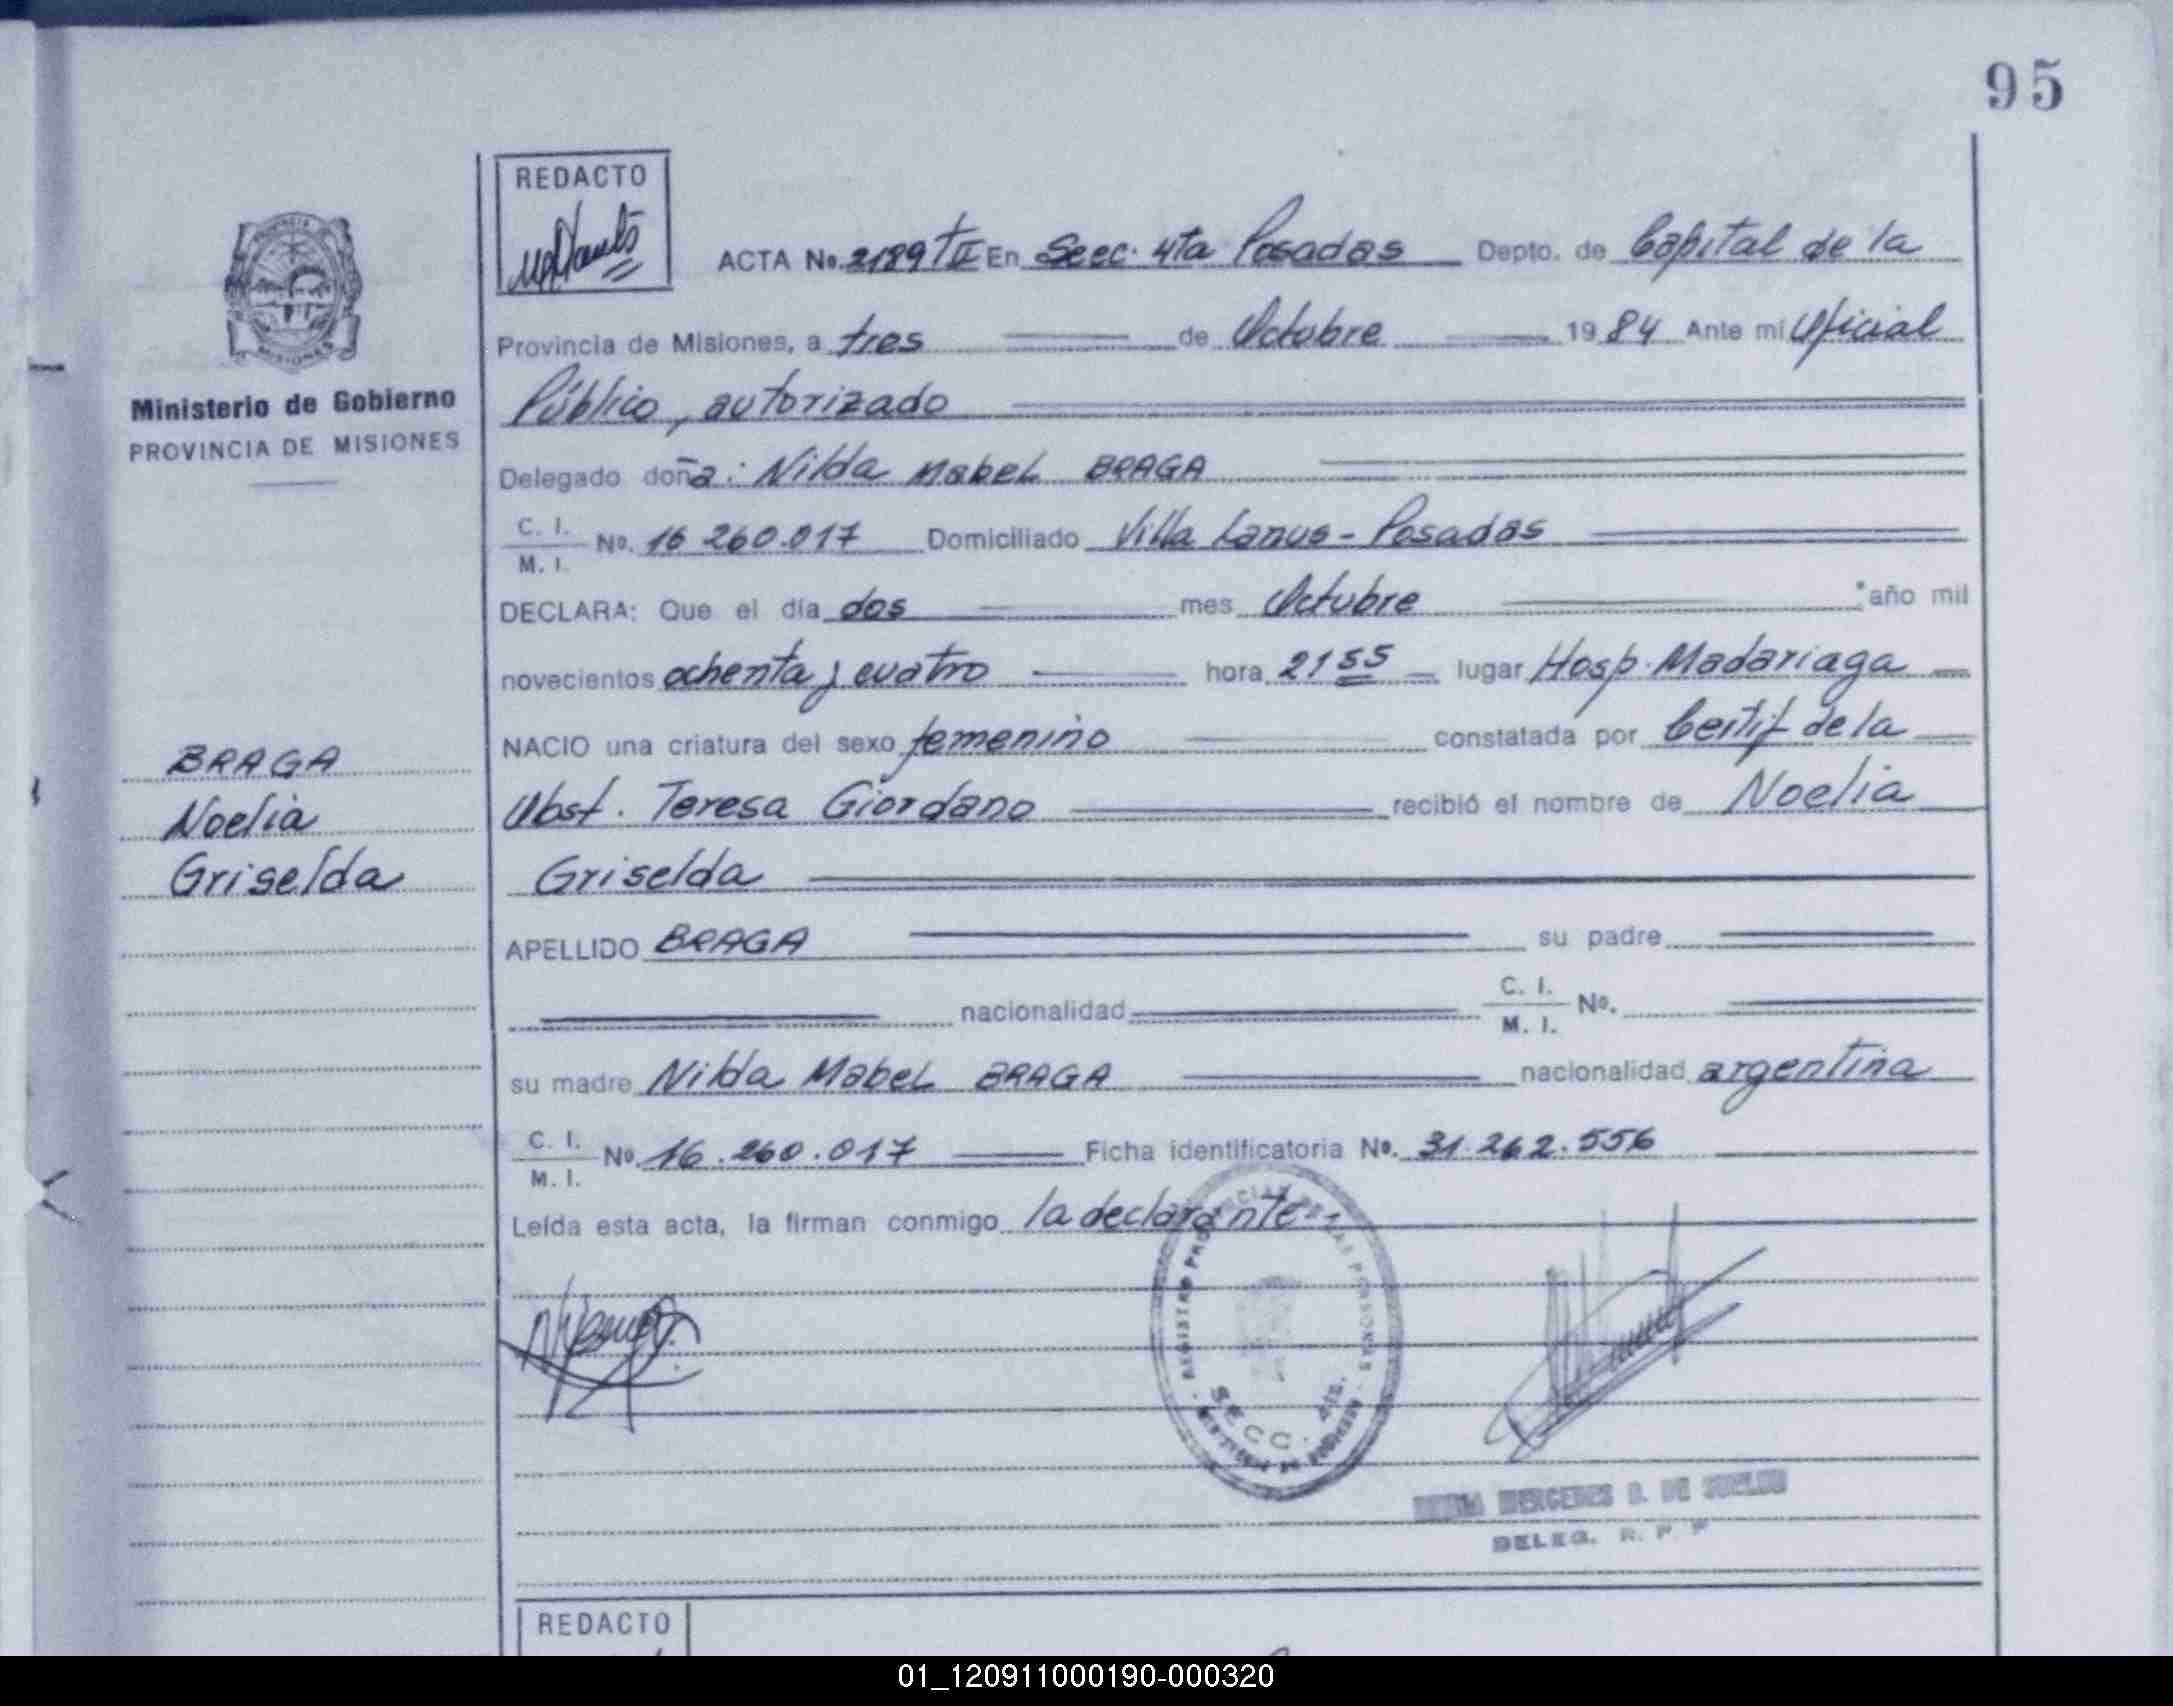 95
REDACTO
ACTA No. 2189 TII En Secc. 4ta Posadas Depto. de Capital de la
Provincia de Misiones, a tres de Octubre 1984 Ante mí Oficial
Público, autorizado
Ministerio de Gobierno
PROVINCIA DE MISIONES
Delegado doña: Nilda Mabel BRAGA
C. I.
M. I. No. 16 260.017 Domiciliado Villa Lanus - Posadas
DECLARA: Que el día dos mes Octubre año mil
novecientos ochenta y cuatro hora 21 55 lugar Hosp. Madariaga
NACIO una criatura del sexo femenino constatada por Certif de la
Obst. Teresa Giordano recibió el nombre de Noelia
Griselda
BRAGA
Noelia
Griselda
APELLIDO BRAGA su padre
nacionalidad C. I.
M. I. No.
su madre Nilda Mabel BRAGA nacionalidad argentina
C. I.
M. I. No. 16.260.017 Ficha identificatoria No. 31.262.556
Leída esta acta, la firman conmigo la declarante
REGISTRO PROVINCIAL DE LAS PERSONAS
SECC. 4ta.
MERCEDES D. DE SUELDO
DELEG. R. P. P
REDACTO
01_120911000190-000320